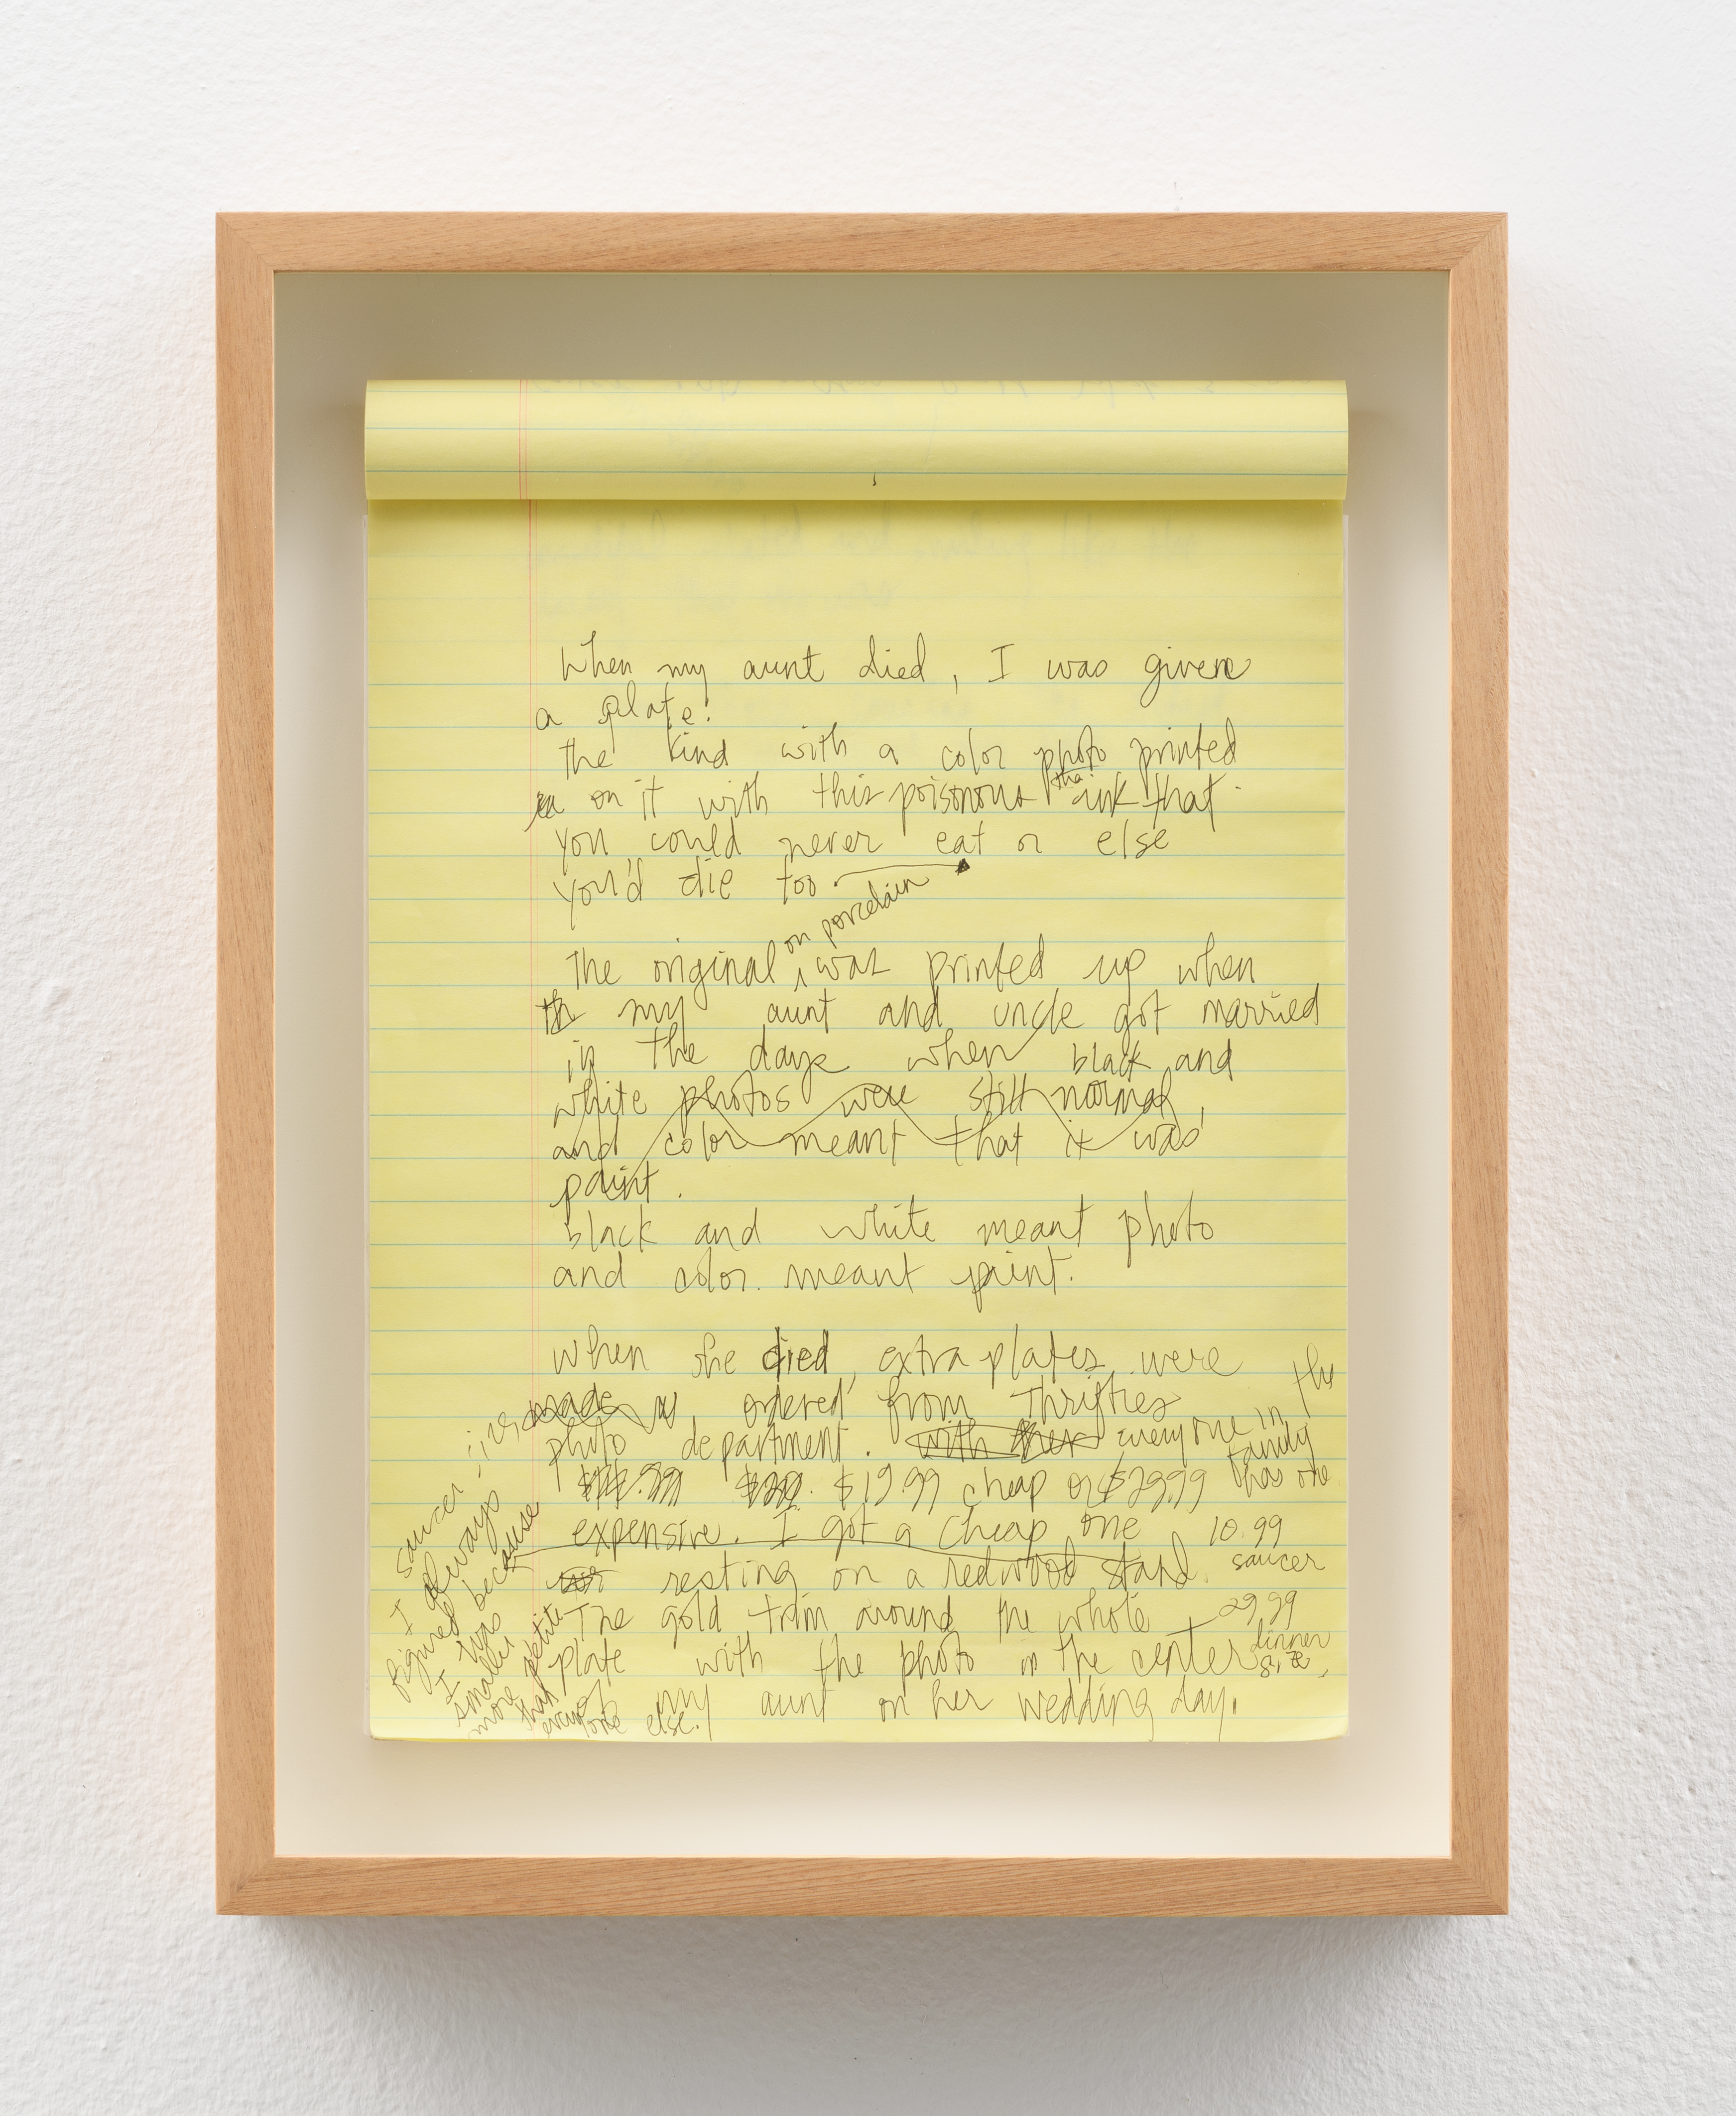 When my aunt died, I was given
a plate.
the kind with a color photo printed
on it with this poisonous ink that
tha
you could never eat or else
you'd die too
on porcelain
The original was printed up when
th my aunt and uncle got married
in the days when black and
white photos were still normal,
and color meant that it was
paint.
black and white meant photo
and color meant paint.
When she died, extra plates were
made ordered from Thrifties
photo department. with her everyone in the
family
has one
$19.99 cheap or $29.99
expensive. I got a cheap one
10.99
saucer
resting on a redwood stand.
The gold trim around the whole
29.99
dinner
size,
plate with the photo in the center
of my aunt on her wedding day.
saucer
I always
figured because
I was
smaller
more petite
than
everyone else.